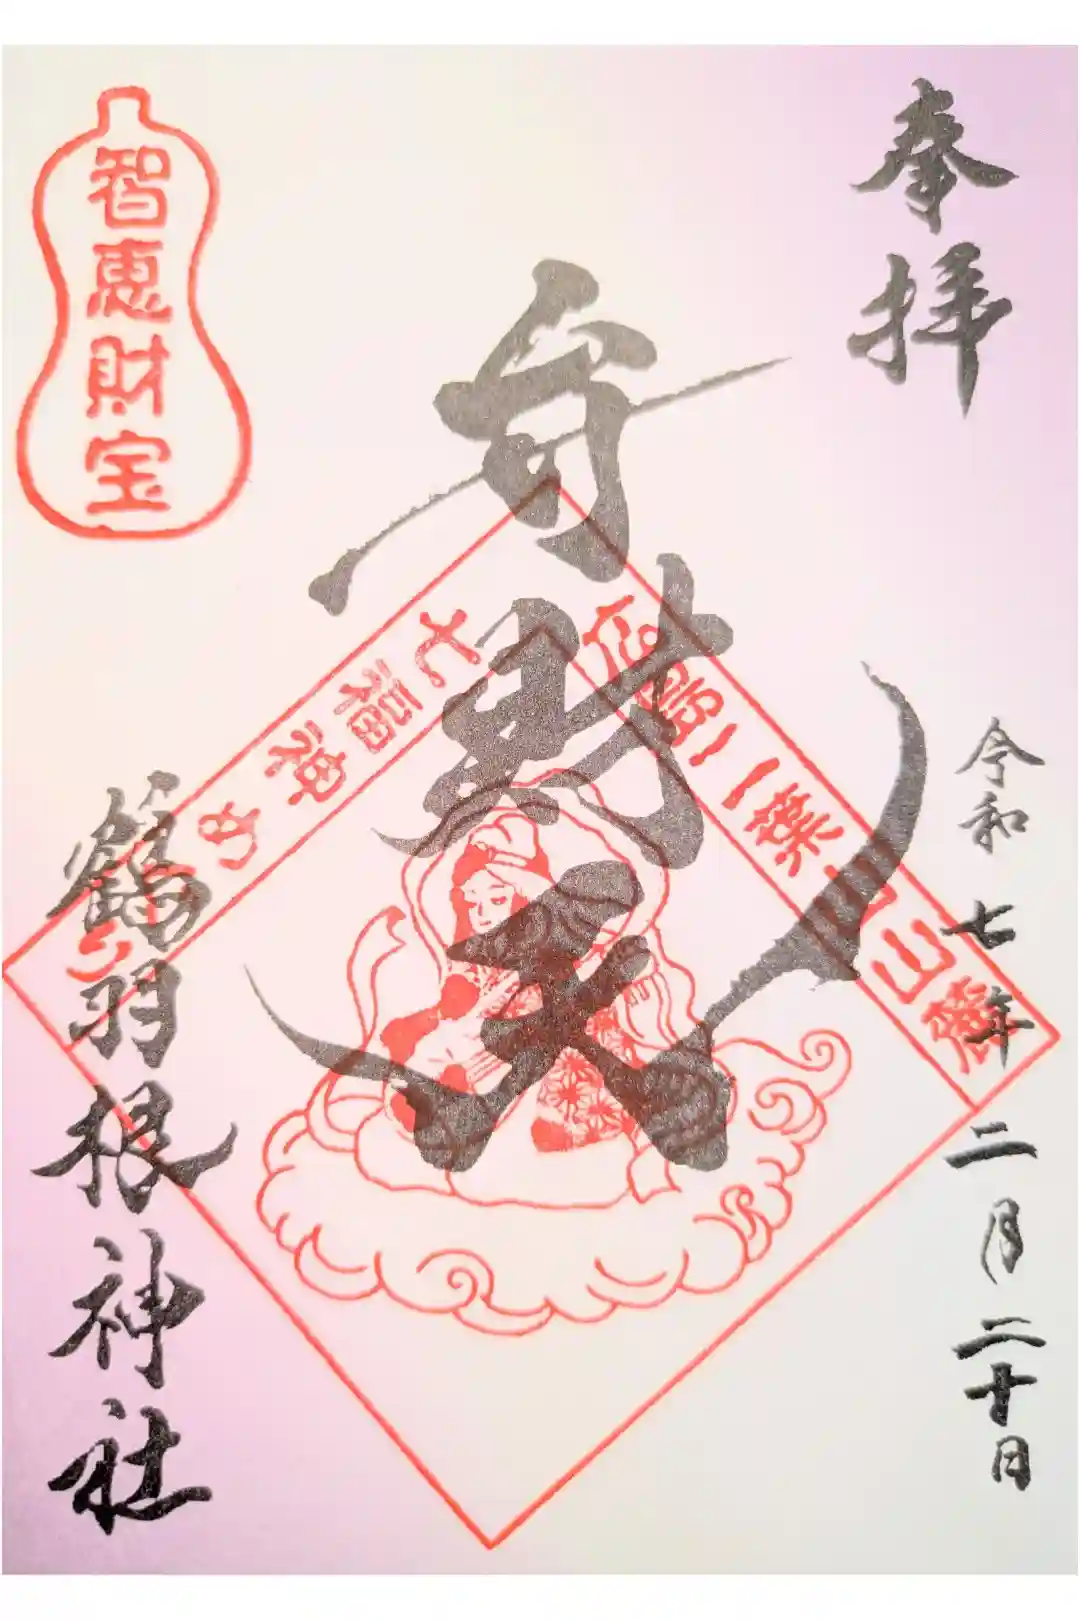 奉拝
令和七年二月二十日
弁財天
広島二葉山山麓
七福神めぐり
智恵財宝
鶴羽根神社